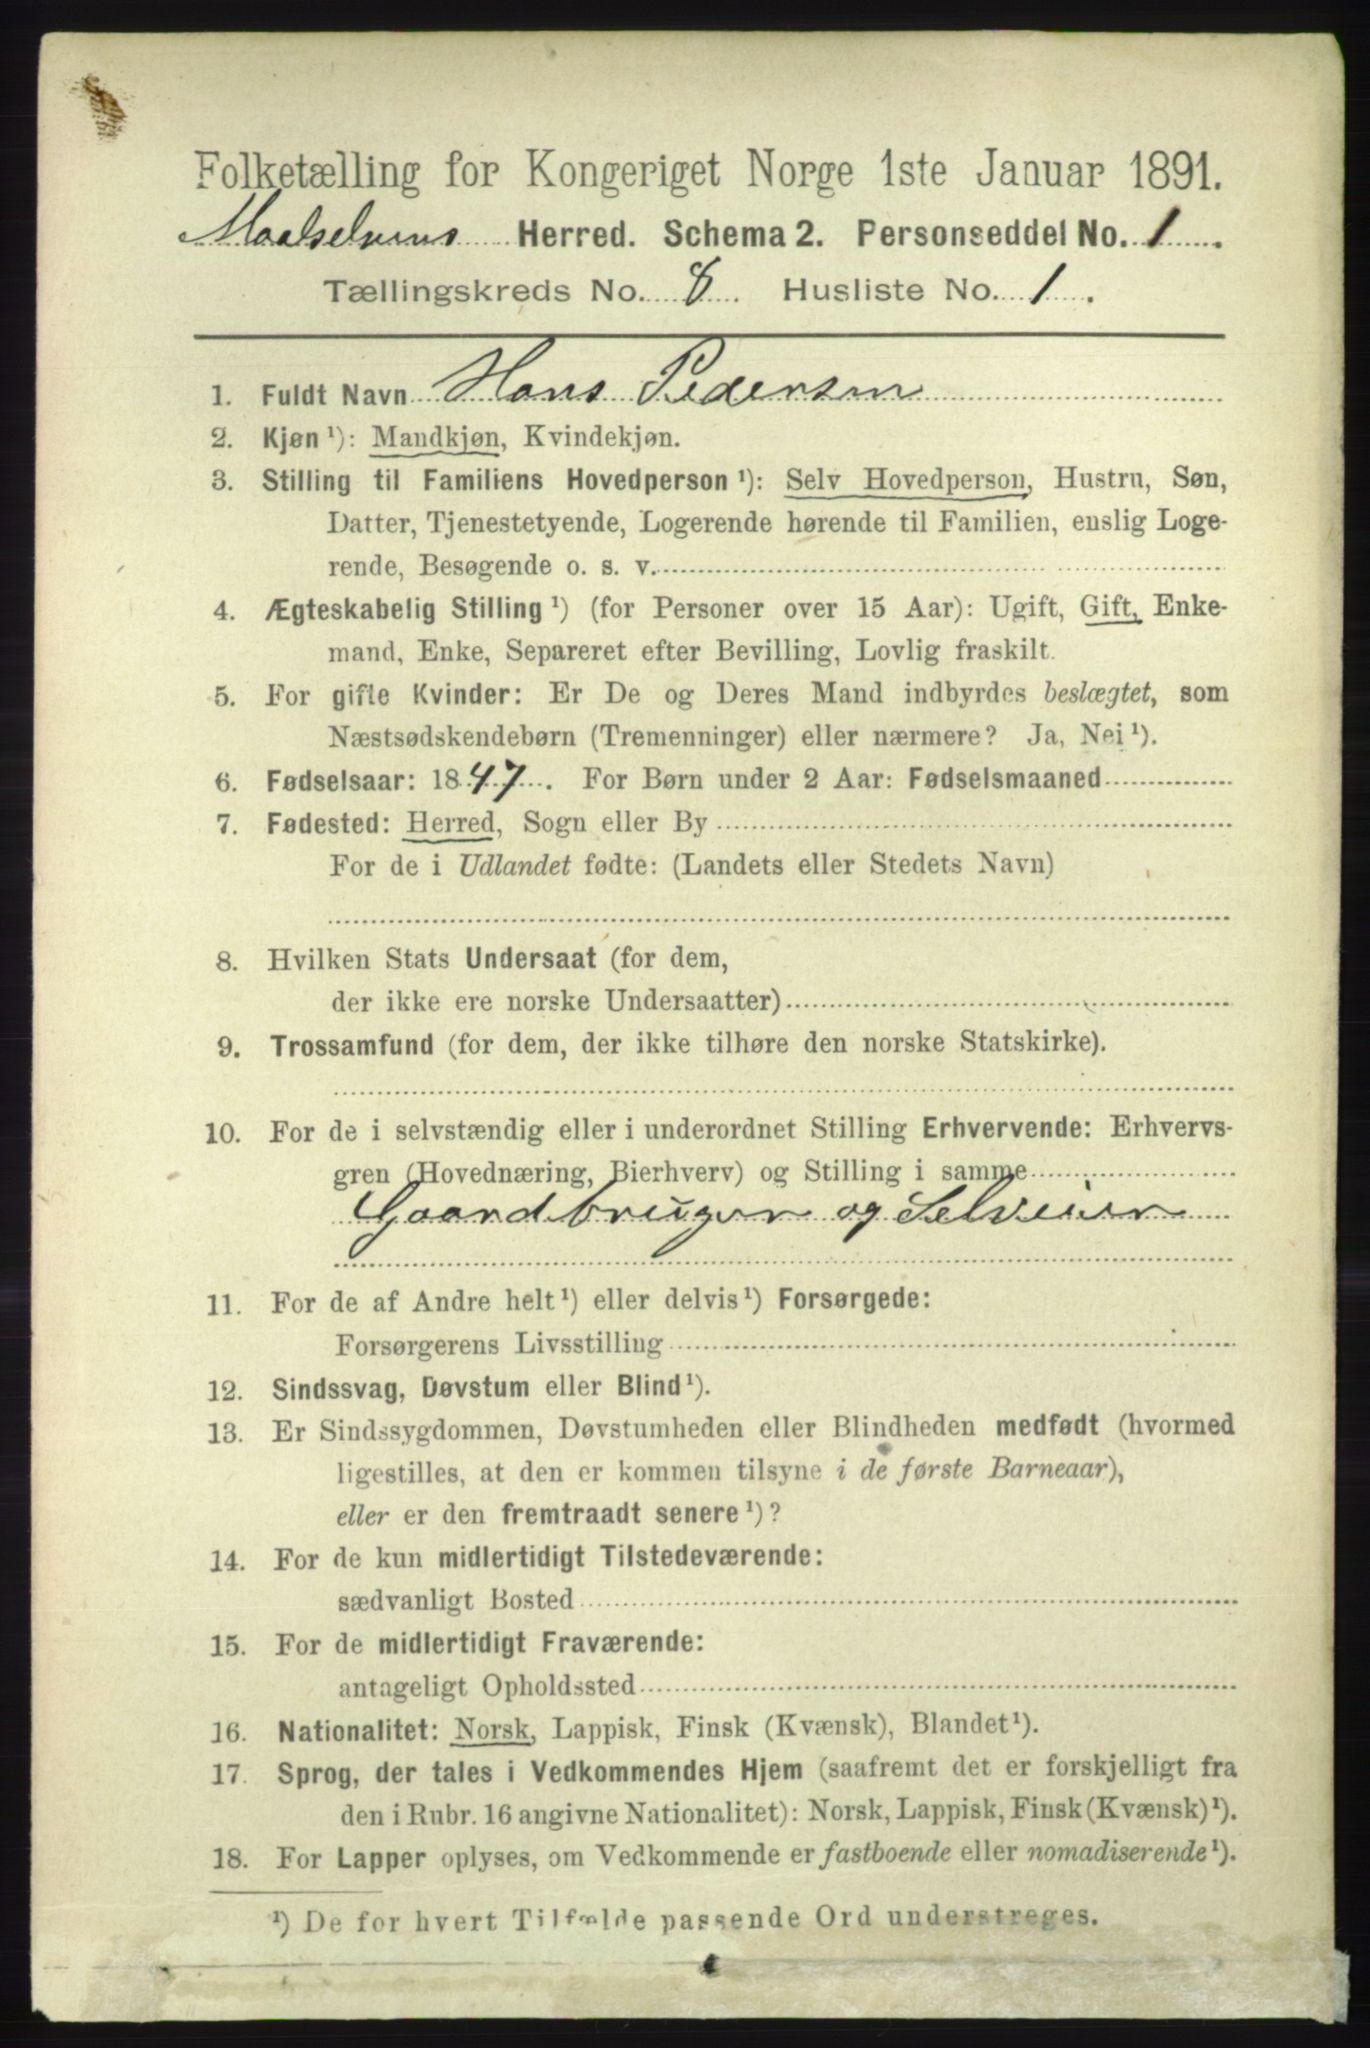 Folketælling for Kongeriget Norge 1ste Januar 1891.
Maalselvens Herred. Schema 2. Personseddel No. 1.
Tællingskreds No. 8. Husliste No. 1.
1. Fuldt Navn Hans Pedersen
2. Kjøn ¹): Mandkjøn, Kvindekjøn.
3. Stilling til Familiens Hovedperson ¹): Selv Hovedperson, Hustru, Søn,
Datter, Tjenestetyende, Logerende hørende til Familien, enslig Loge-
rende, Besøgende o. s. v.
4. Ægteskabelig Stilling ¹) (for Personer over 15 Aar): Ugift, Gift, Enke-
mand, Enke, Separeret efter Bevilling, Lovlig fraskilt.
5. For gifte Kvinder: Er De og Deres Mand indbyrdes beslægtet, som
Næstsødskendebørn (Tremenninger) eller nærmere? Ja, Nei ¹).
6. Fødselsaar: 1847. For Børn under 2 Aar: Fødselsmaaned
7. Fødested: Herred, Sogn eller By
For de i Udlandet fødte: (Landets eller Stedets Navn)
8. Hvilken Stats Undersaat (for dem,
der ikke ere norske Undersaatter)
9. Trossamfund (for dem, der ikke tilhøre den norske Statskirke).
10. For de i selvstændig eller i underordnet Stilling Erhvervende: Erhvervs-
gren (Hovednæring, Bierhverv) og Stilling i samme
Gaardbruger og Selveier
11. For de af Andre helt ¹) eller delvis ¹) Forsørgede:
Forsørgerens Livsstilling
12. Sindssvag, Døvstum eller Blind ¹).
13. Er Sindssygdommen, Døvstumheden eller Blindheden medfødt (hvormed
ligestilles, at den er kommen tilsyne i de første Barneaar),
eller er den fremtraadt senere ¹)?
14. For de kun midlertidigt Tilstedeværende:
sædvanligt Bosted
15. For de midlertidigt Fraværende:
antageligt Opholdssted
16. Nationalitet: Norsk, Lappisk, Finsk (Kvænsk), Blandet ¹).
17. Sprog, der tales i Vedkommendes Hjem (saafremt det er forskjelligt fra
den i Rubr. 16 angivne Nationalitet): Norsk, Lappisk, Finsk (Kvænsk) ¹).
18. For Lapper oplyses, om Vedkommende er fastboende eller nomadiserende ¹).
¹) De for hvert Tilfælde passende Ord understreges.